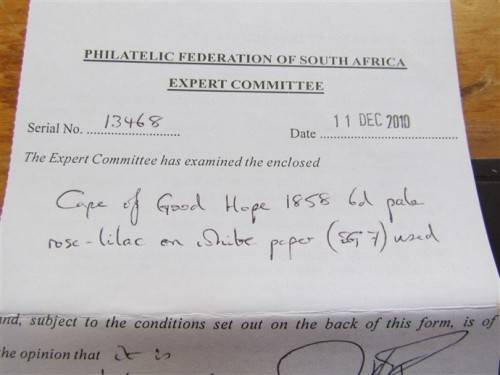 PHILATELIC FEDERATION OF SOUTH AFRICA
EXPERT COMMITTEE
Serial No. 13468
Date 11 DEC 2010
The Expert Committee has examined the enclosed
Cape of Good Hope 1858 6d pale
rose-lilac on white paper (SG 7) used
and, subject to the conditions set out on the back of this form, is of
the opinion that it is